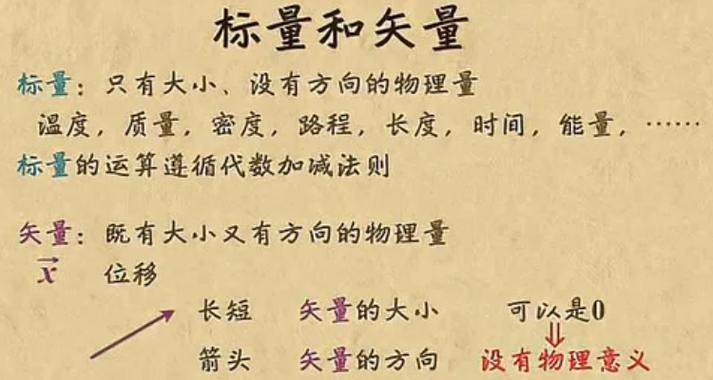 标量和矢量
标量：只有大小、没有方向的物理量
温度，质量，密度，路程，长度，时间，能量，……
标量的运算遵循代数加减法则
矢量：既有大小又有方向的物理量
x⃗ 位移
长短 矢量的大小 可以是0
⇓
箭头 矢量的方向 没有物理意义